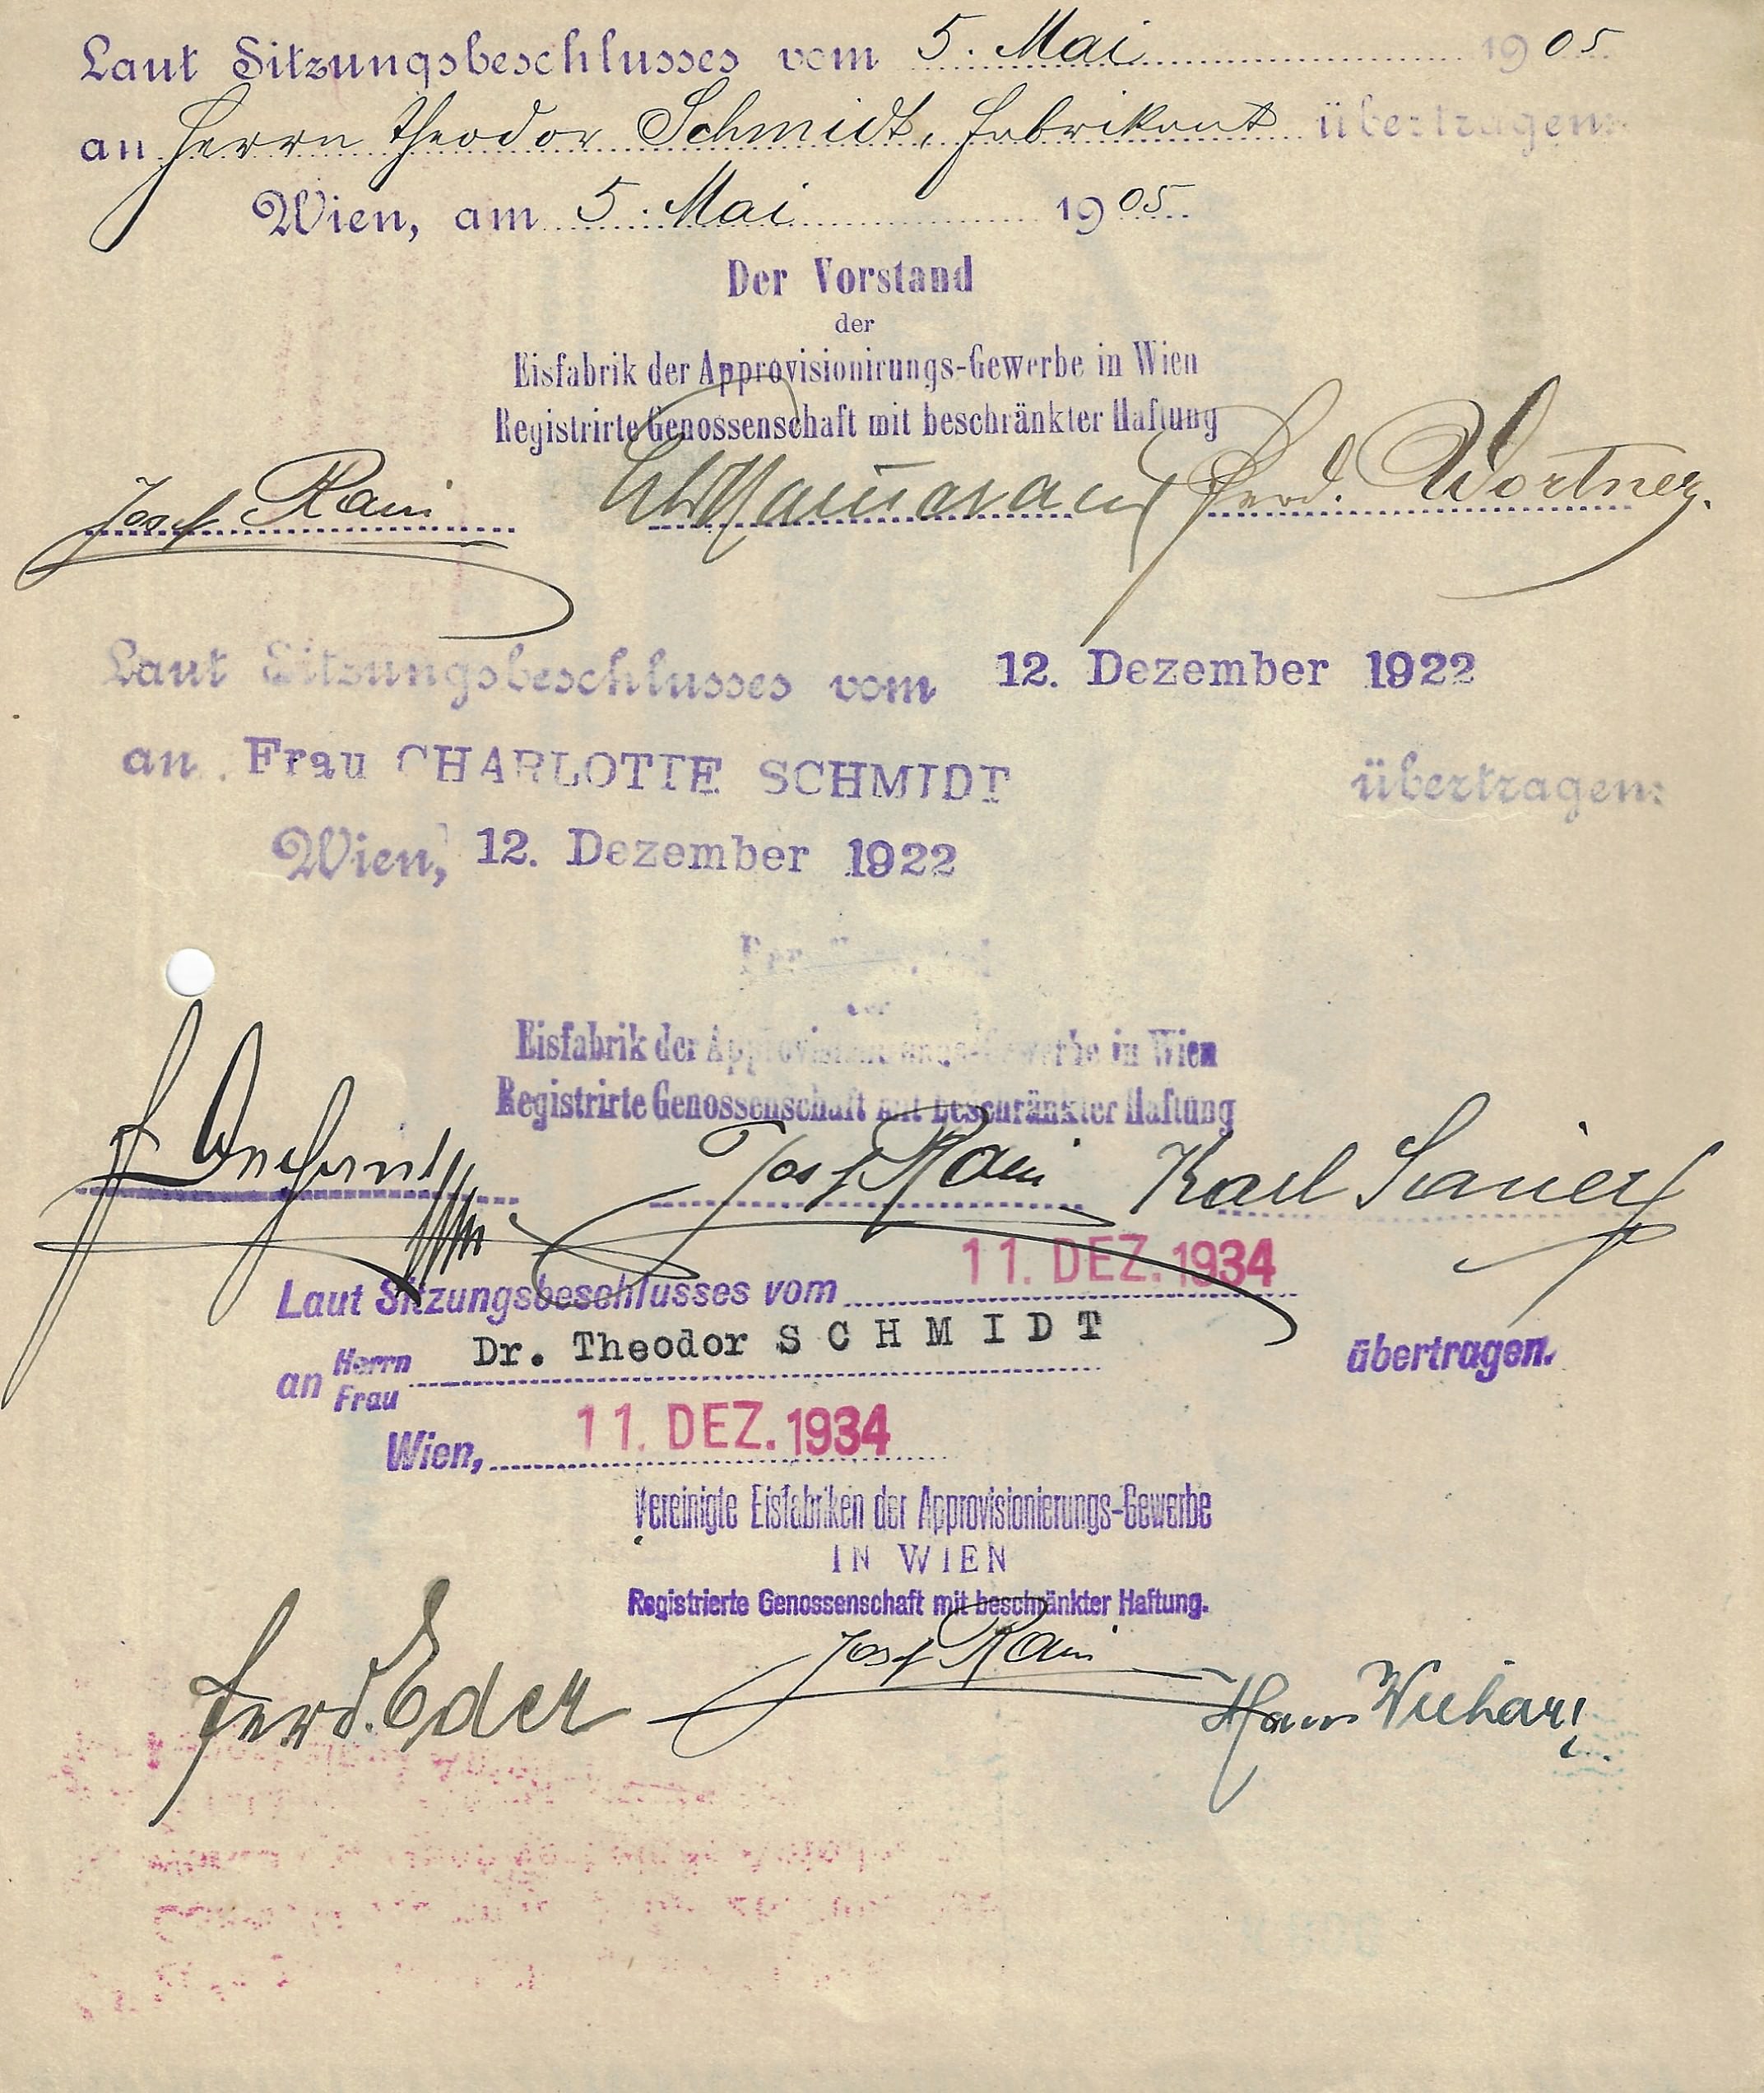 Laut Sitzungsbeschlusses vom 5. Mai 1905
an Herrn Theodor Schmidt, Fabrikant übertragen:
Wien, am 5. Mai 1905.
Der Vorstand
der
Eisfabrik der Approvisionirungs-Gewerbe in Wien
Registrirte Genossenschaft mit beschränkter Haftung
Josef Rain Ferd. Wortner.
Laut Sitzungsbeschlusses vom 12. Dezember 1922
an Frau CHARLOTTE SCHMIDT übertragen:
Wien, 12. Dezember 1922
Eisfabrik der Approvisionirungs-Gewerbe in Wien
Registrirte Genossenschaft mit beschränkter Haftung
Josef Rain Karl
Laut Sitzungsbeschlusses vom 11. DEZ. 1934
an Herrn Frau Dr. Theodor SCHMIDT übertragen.
Wien, 11. DEZ. 1934
Vereinigte Eisfabriken der Approvisionierungs-Gewerbe
IN WIEN
Registrierte Genossenschaft mit beschränkter Haftung.
Ferd. Eder Josef Rain Hans